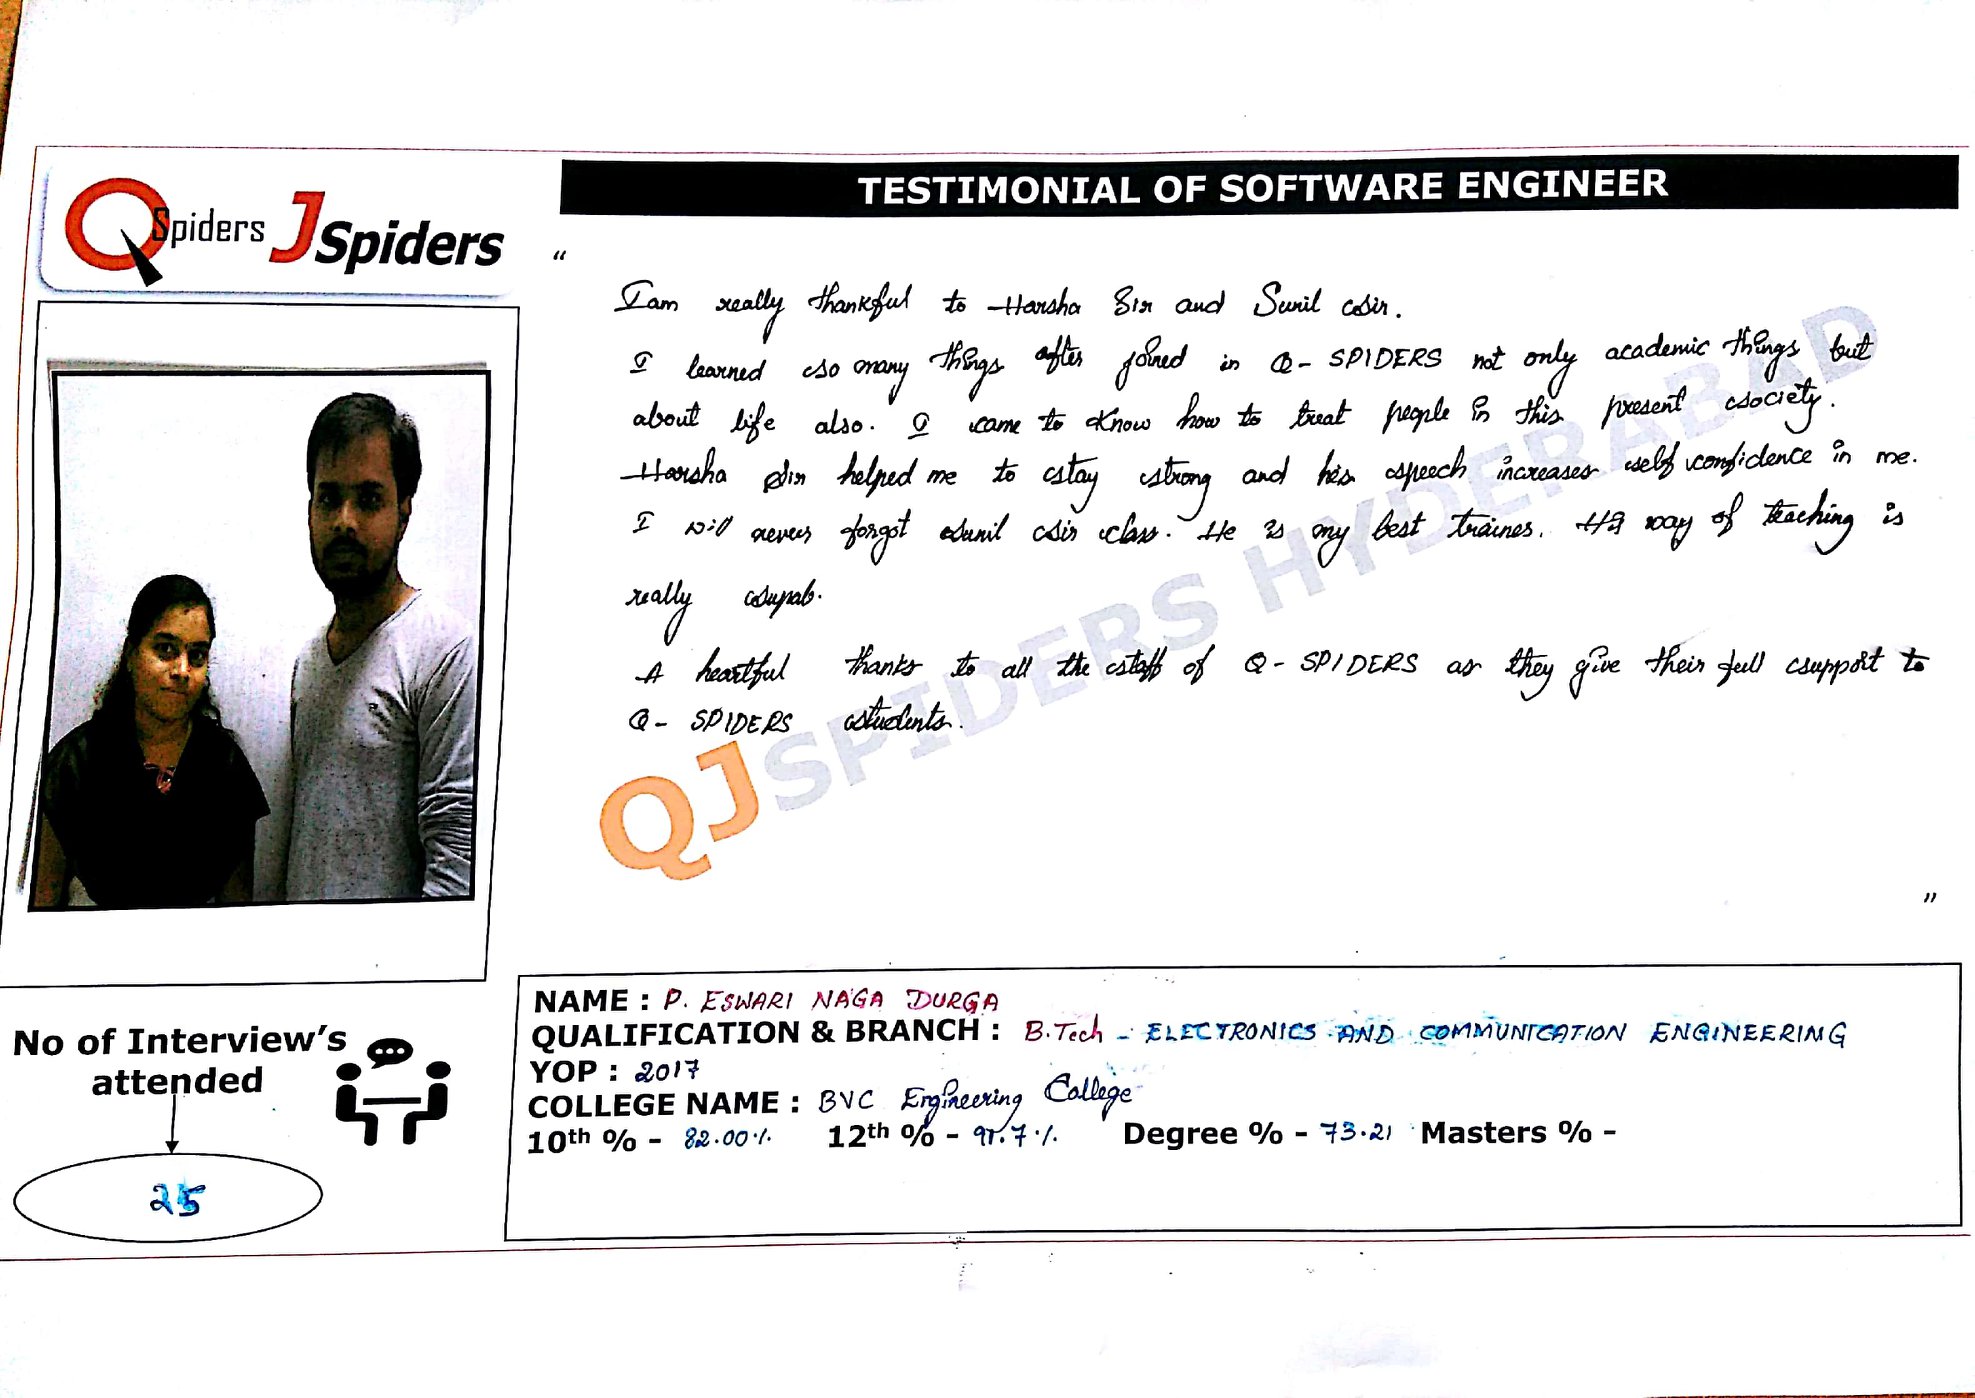 QSpiders JSpiders
TESTIMONIAL OF SOFTWARE ENGINEER
“
I am really thankful to Harsha Sir and Sunil Sir.
I learned so many things after joined in Q-SPIDERS not only academic things but
about life also. I came to know how to treat people in this present society.
Harsha Sir helped me to stay strong and his speech increases self confidence in me.
I will never forgot Sunil Sir class. He is my best trainer. His way of teaching is
really supab.
A heartful thanks to all the staff of Q-SPIDERS as they give their full support to
Q-SPIDERS students.
”
QJSPIDERS HYDERABAD
No of Interview's
attended
25
NAME : P. ESWARI NAGA DURGA
QUALIFICATION & BRANCH : B.Tech - ELECTRONICS AND COMMUNICATION ENGINEERING
YOP : 2017
COLLEGE NAME : BVC Engineering College
10th % - 82.00% 12th % - Degree % - 73.21 Masters % -